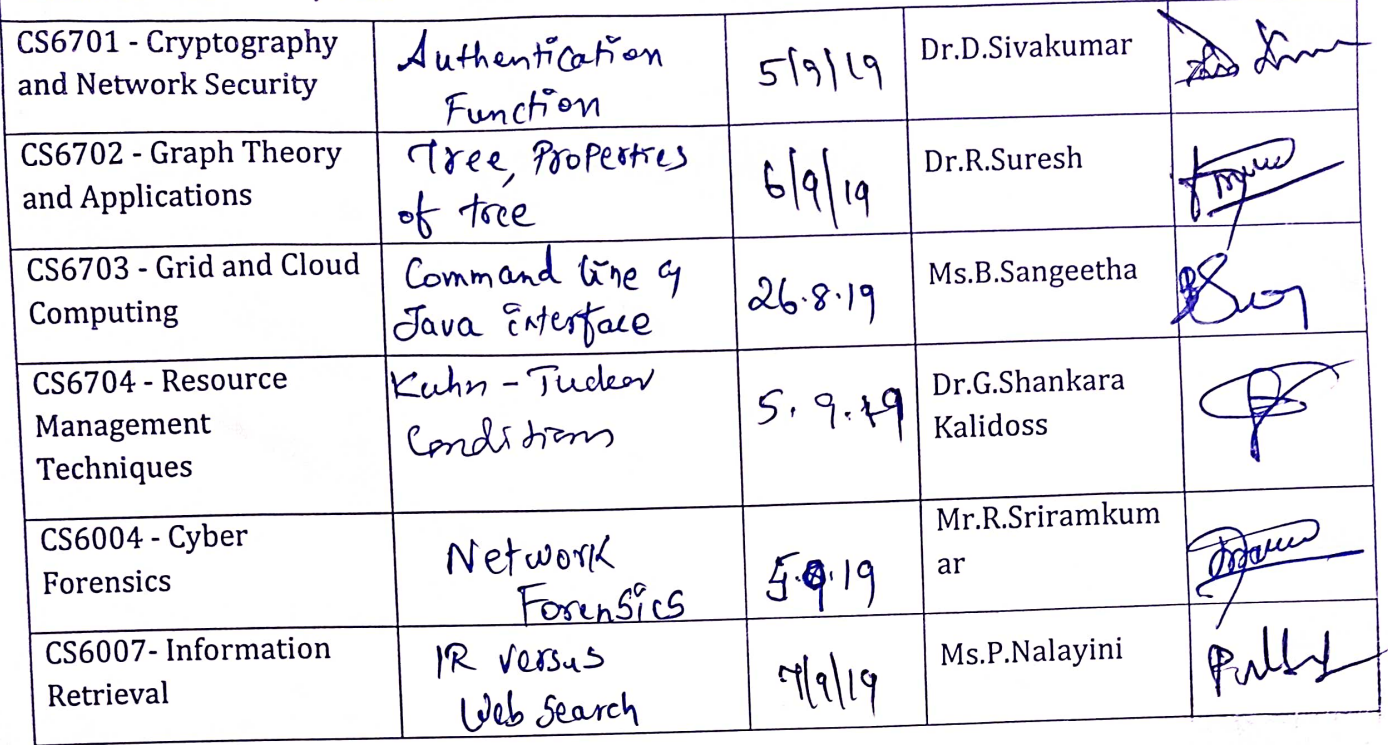 CS6701 - Cryptography
and Network Security
Authentication
Function
5/9/19
Dr.D.Sivakumar
CS6702 - Graph Theory
and Applications
Tree, Properties
of tree
6/9/19
Dr.R.Suresh
CS6703 - Grid and Cloud
Computing
Command line &
Java interface
26.8.19
Ms.B.Sangeetha
CS6704 - Resource
Management
Techniques
Kuhn - Tucker
Conditions
5.9.19
Dr.G.Shankara
Kalidoss
CS6004 - Cyber
Forensics
Network
Forensics
5.9.19
Mr.R.Sriramkum
ar
CS6007- Information
Retrieval
IR versus
Web Search
7/9/19
Ms.P.Nalayini